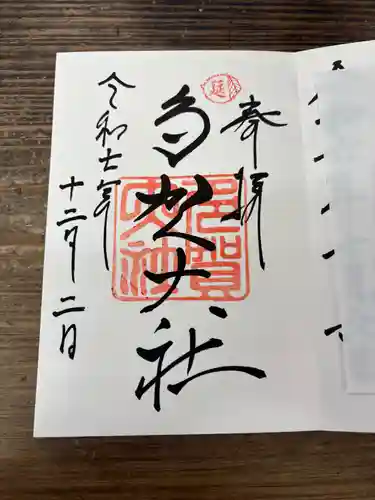 奉拝
延
多賀大社
多賀大社
令和七年
十二月二日